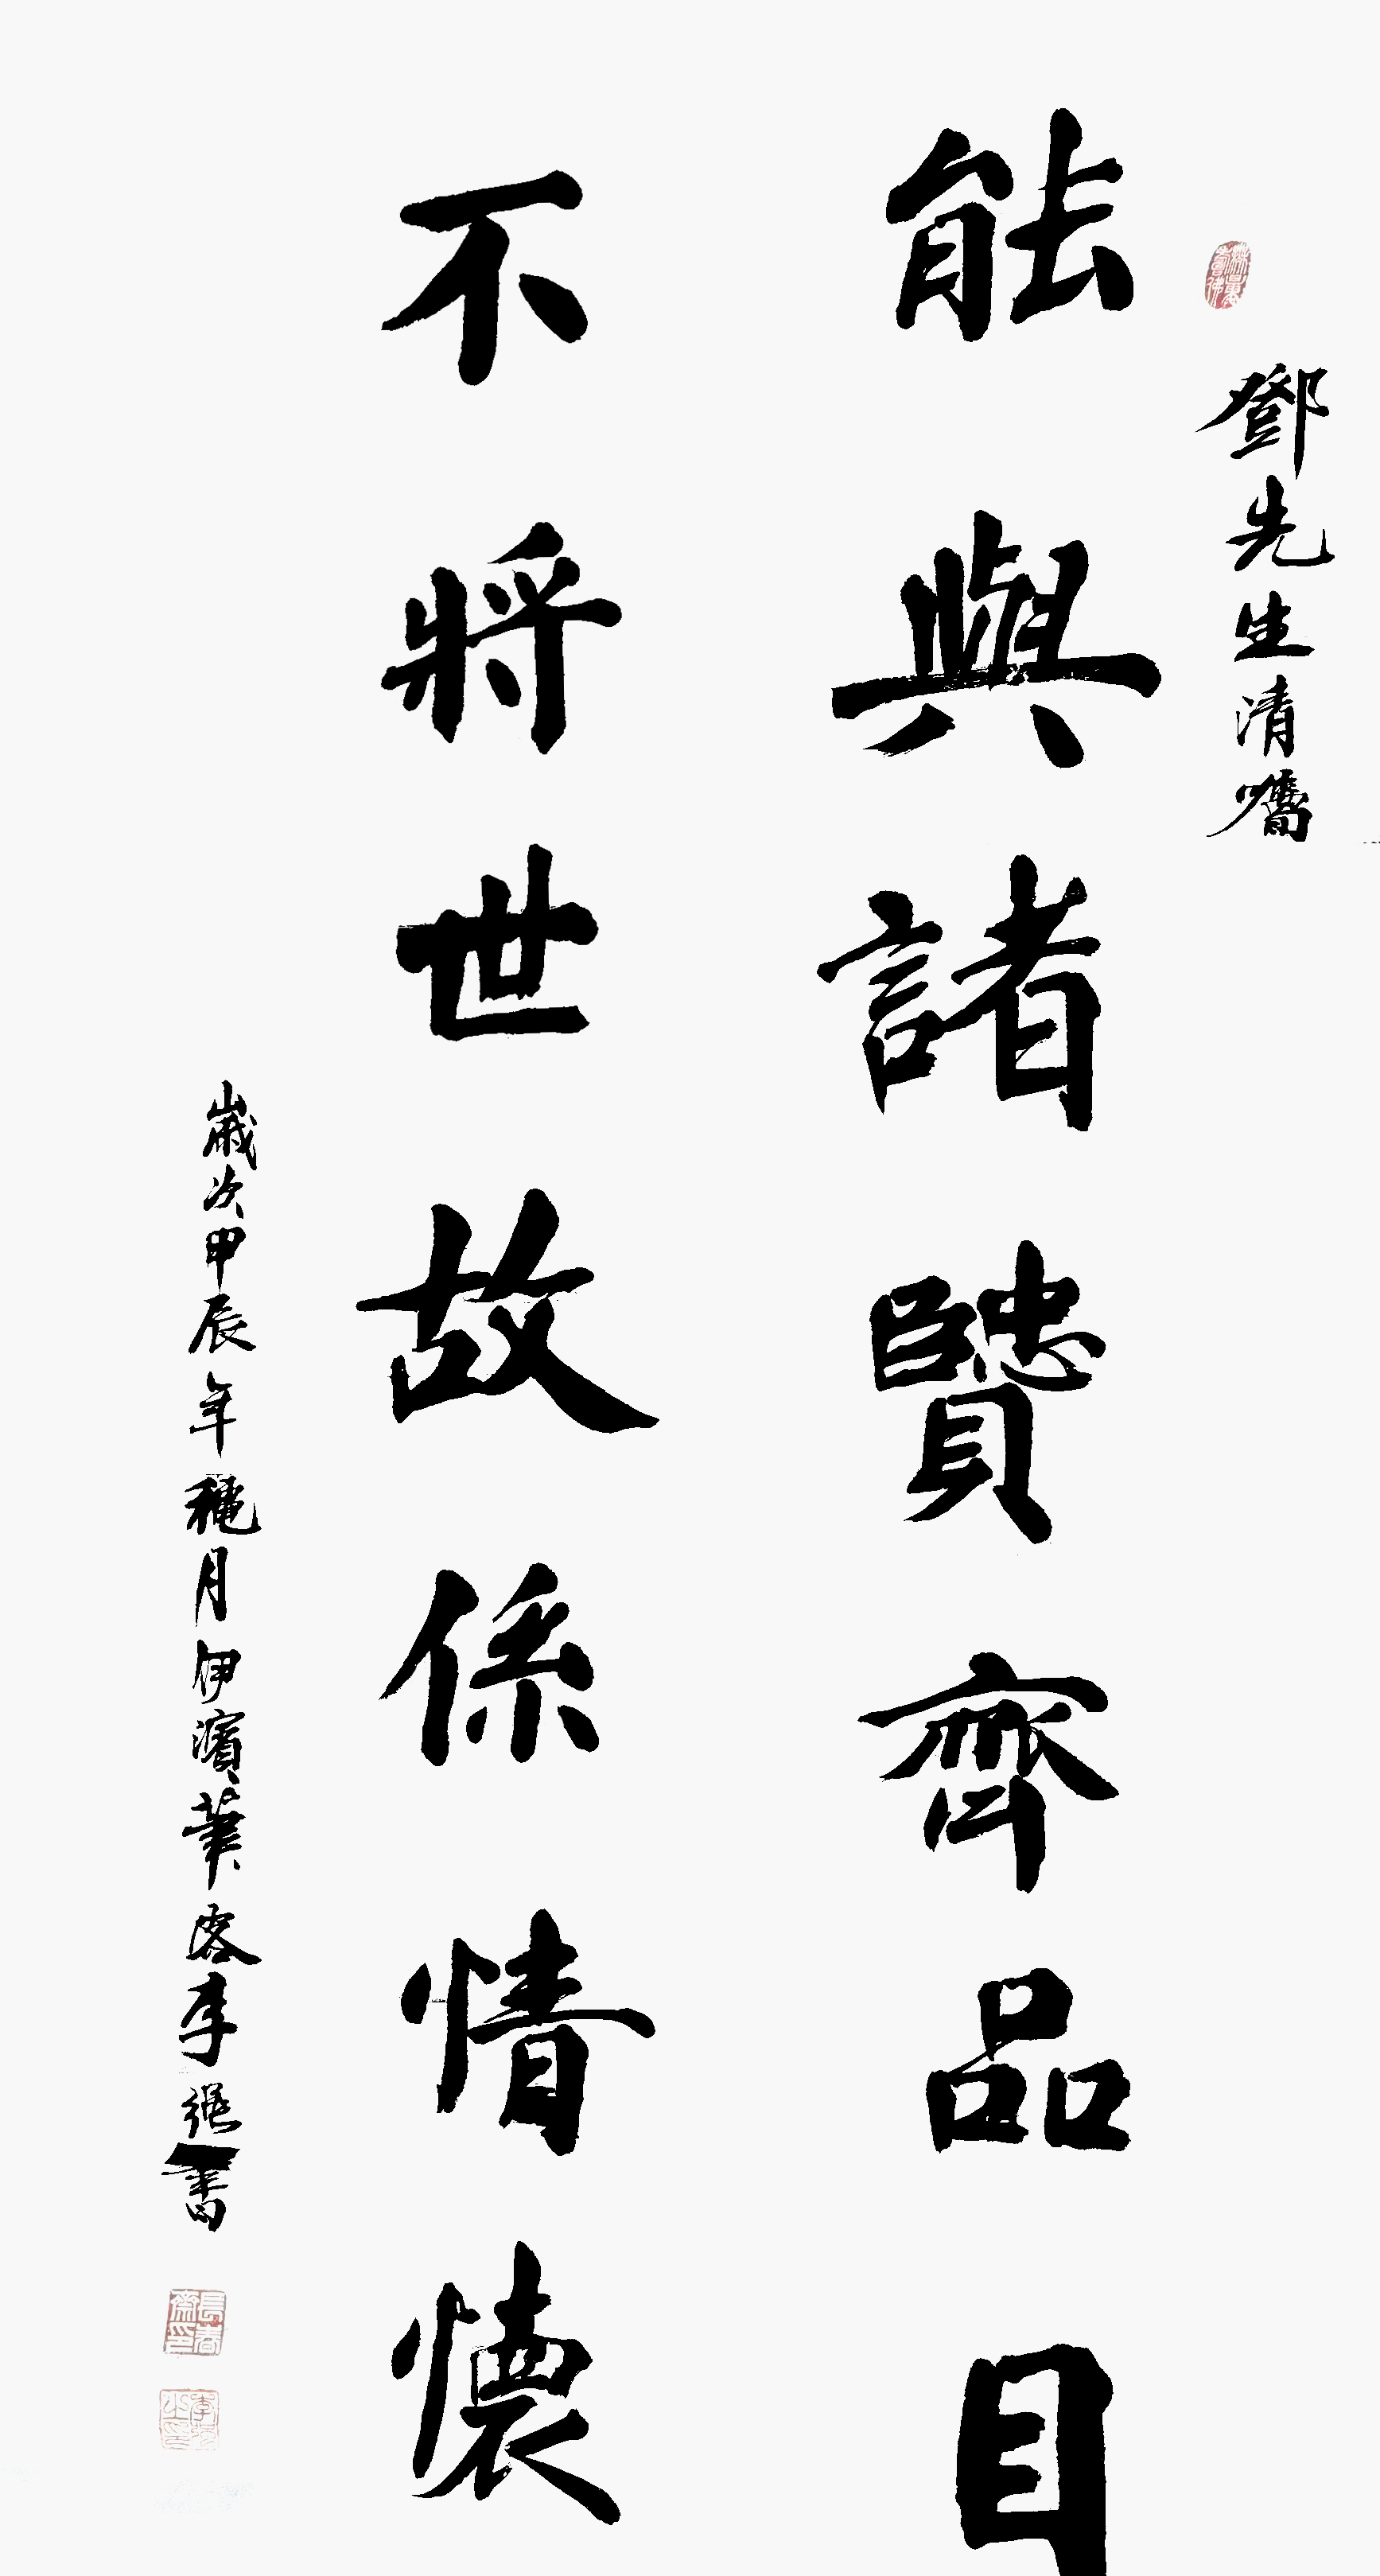 鄧先生清嘱
能與諸賢齊品目
不將世故係情懷
歲次甲辰年龝月伊濱
李振書